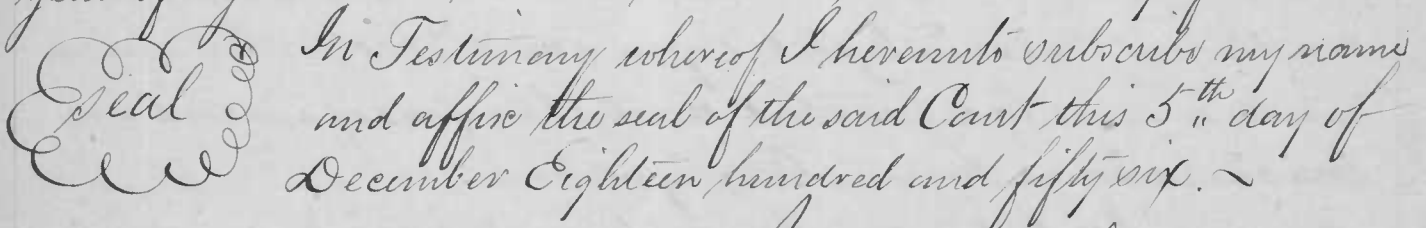 Seal
In Testimony whereof I hereunto subscribe my name
and affix the seal of the said Court this 5th day of
December Eighteen hundred and fifty six. ~